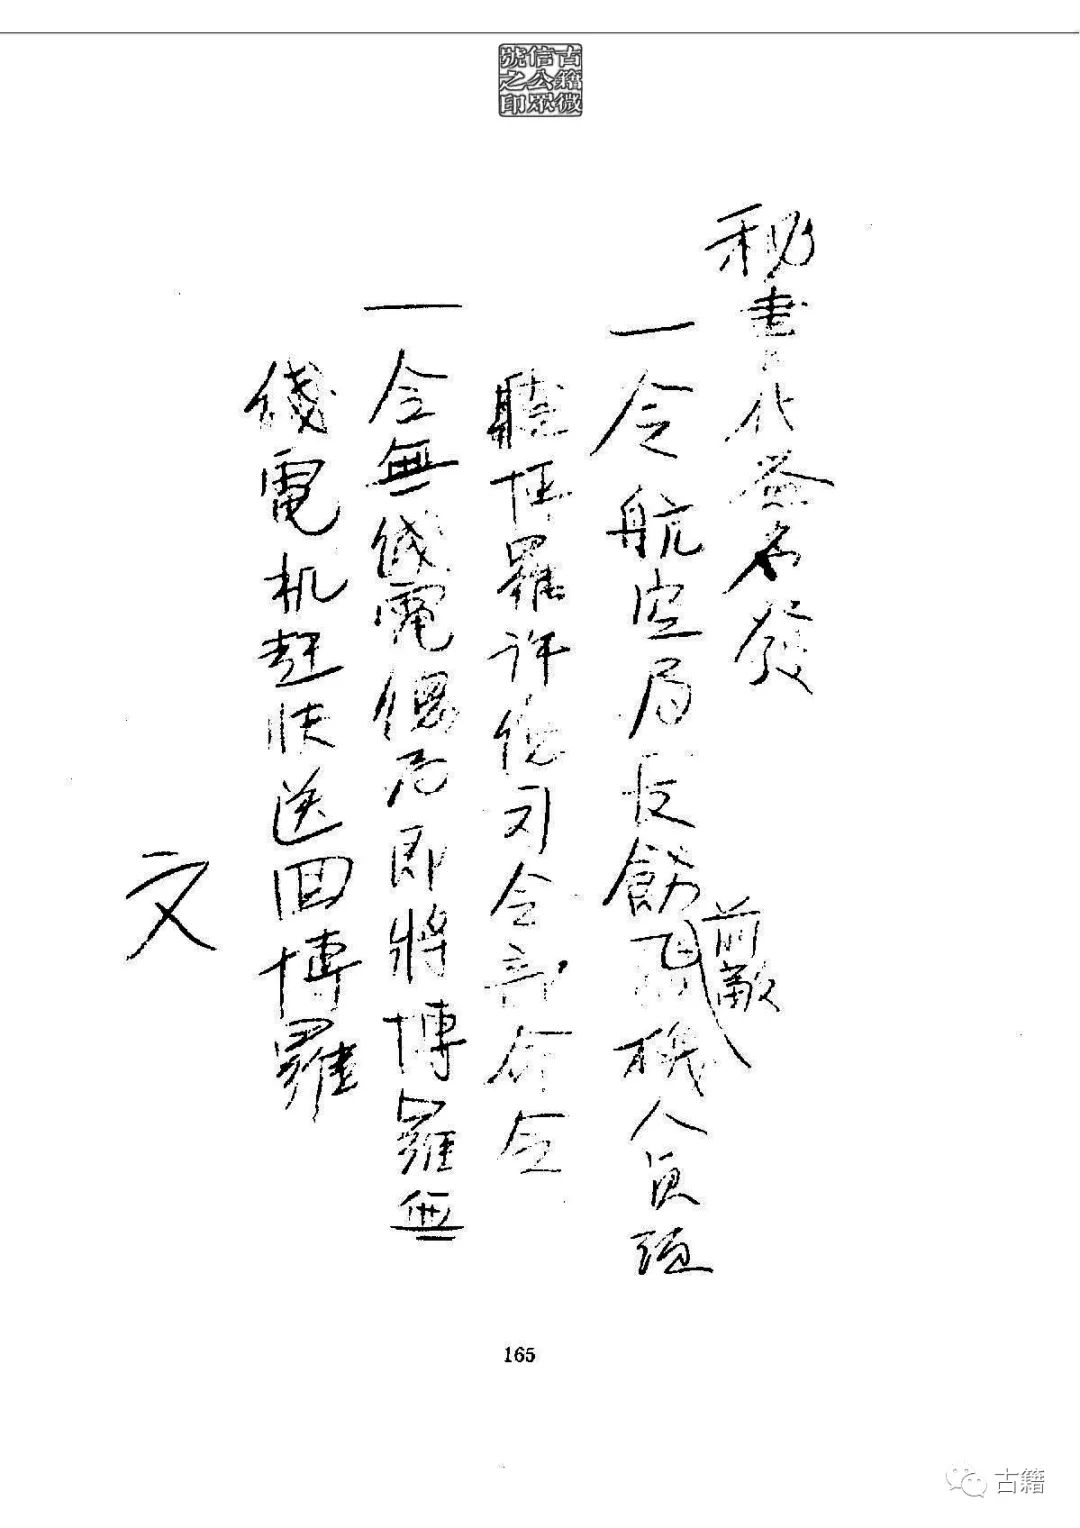 古籍微
信公眾
號之印
秘書代簽名發
一令航空局長飭前敵飛機人員須
聽博羅許總司令部命令
一令無綫電總局即將博羅無
綫電机赶快送回博羅
文
165
古籍